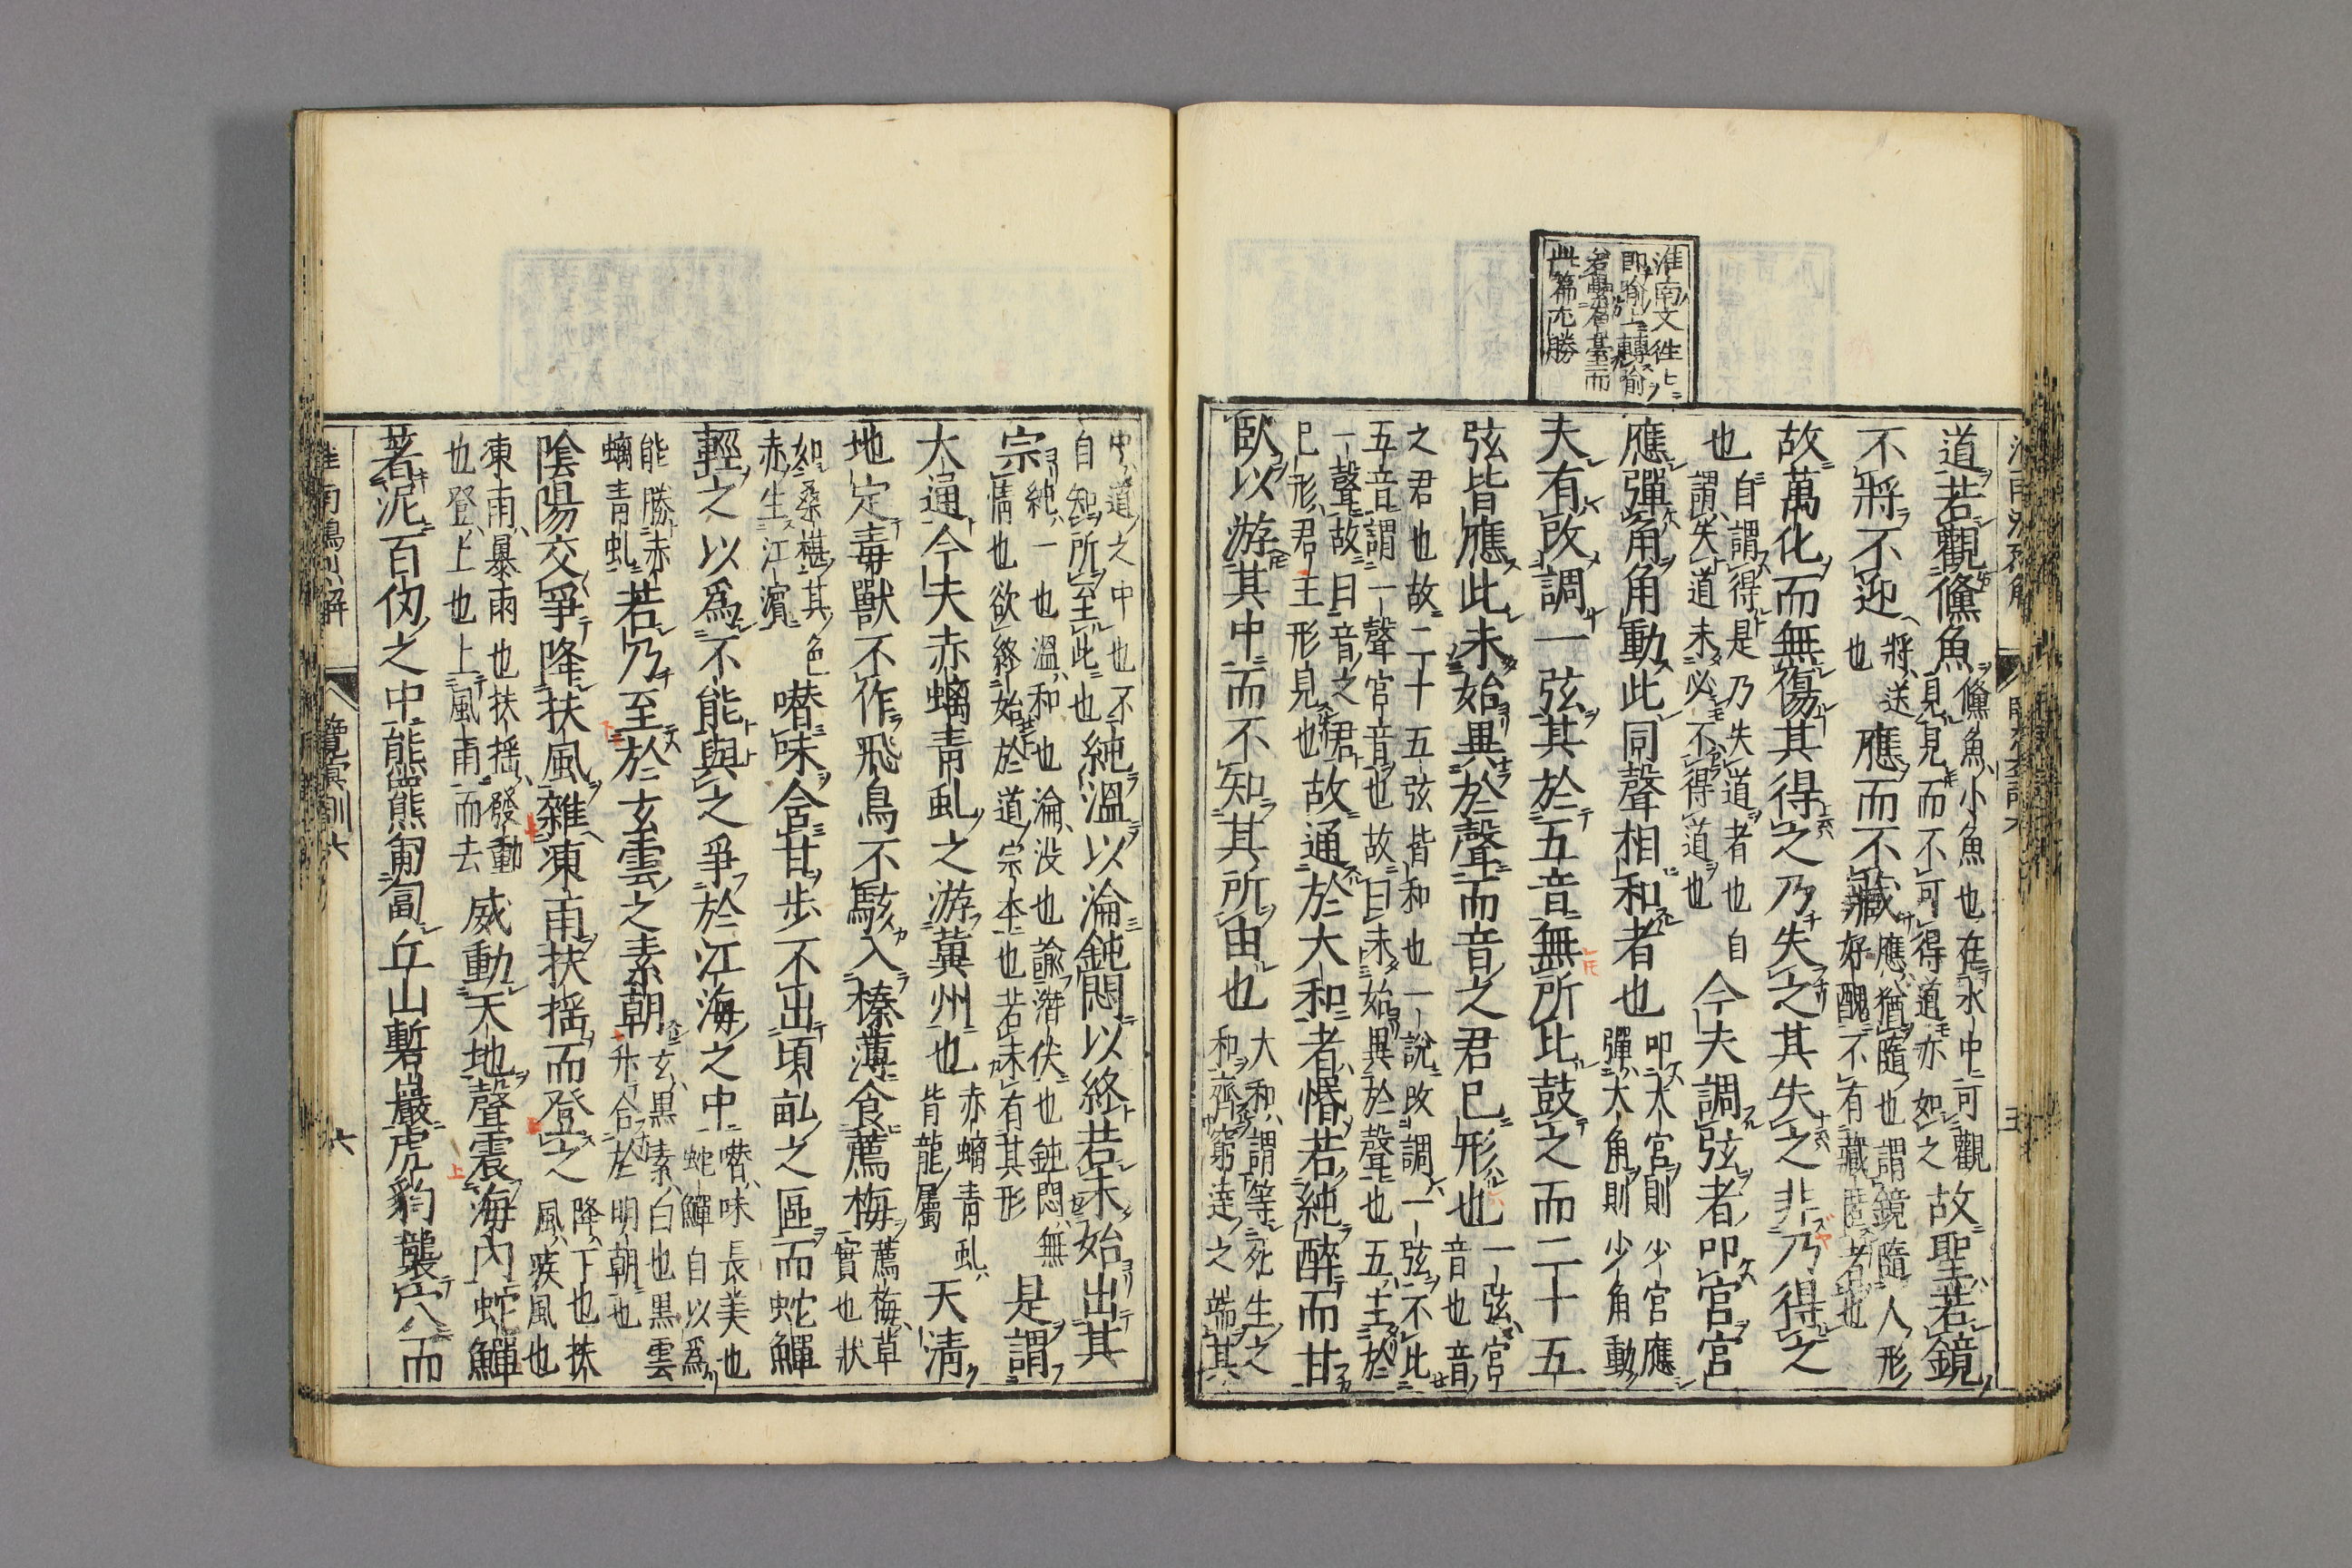 淮南文往々
即喻上轉喻
若累層臺而
此篇尤勝
道若觀鯈魚鯈魚小魚也在水中可觀見見而不可得道亦如之故聖若鏡
不將不迎將送也應而不藏應猶隨也謂鏡隨人形好醜不有藏匿者也
故萬化而無傷其得之乃失之其失之非乃得之
也自謂得是乃失道者也自謂失道未必不得道也今夫調弦者叩宮宮
應彈角角動此同聲相和者也叩大宮則少宮應彈大角則少角動
夫有改調一弦其於五音無所比鼓之而二十五
弦皆應此未始異於聲而音之君已形也一弦宮音也音
之君也故二十五弦皆和也一說改調一弦不比五音謂一聲宮音也故曰未始異於聲也五主於
一聲故曰音之君已形君主形見也故通於大和者惛若純醉而甘
臥以游其中而不知其所由也大和謂等死生之和齊窮達之端其
中道之中也不自知所至此也純溫以淪鈍悶以終若未始出其
宗純一也溫和也淪没也諭潛伏也鈍悶無情也欲終始於道宗本也若未有其形是謂
大通今夫赤螭青虬之游冀州也赤螭青虬皆龍屬天清
地定毒獸不作飛鳥不駭入榛薄食薦梅薦梅草實也狀
如桑椹其色赤生江濵噆味含甘步不出頃畝之區而蛇鱓
輕之以為不能與之爭於江海之中噆味長美也蛇鱓自以為
能勝赤螭青虬若乃至於玄雲之素朝玄黒素白也黒雲升合於明朝也
陰陽交爭降扶風雜凍雨扶搖而登之降下也扶風疾風也
凍雨暴雨也扶搖發動也登上也上風雨而去威動天地聲震海內蛇鱓
著泥百仞之中熊羆匍匐丘山磛巖虎豹襲穴而
覽冥訓六
六